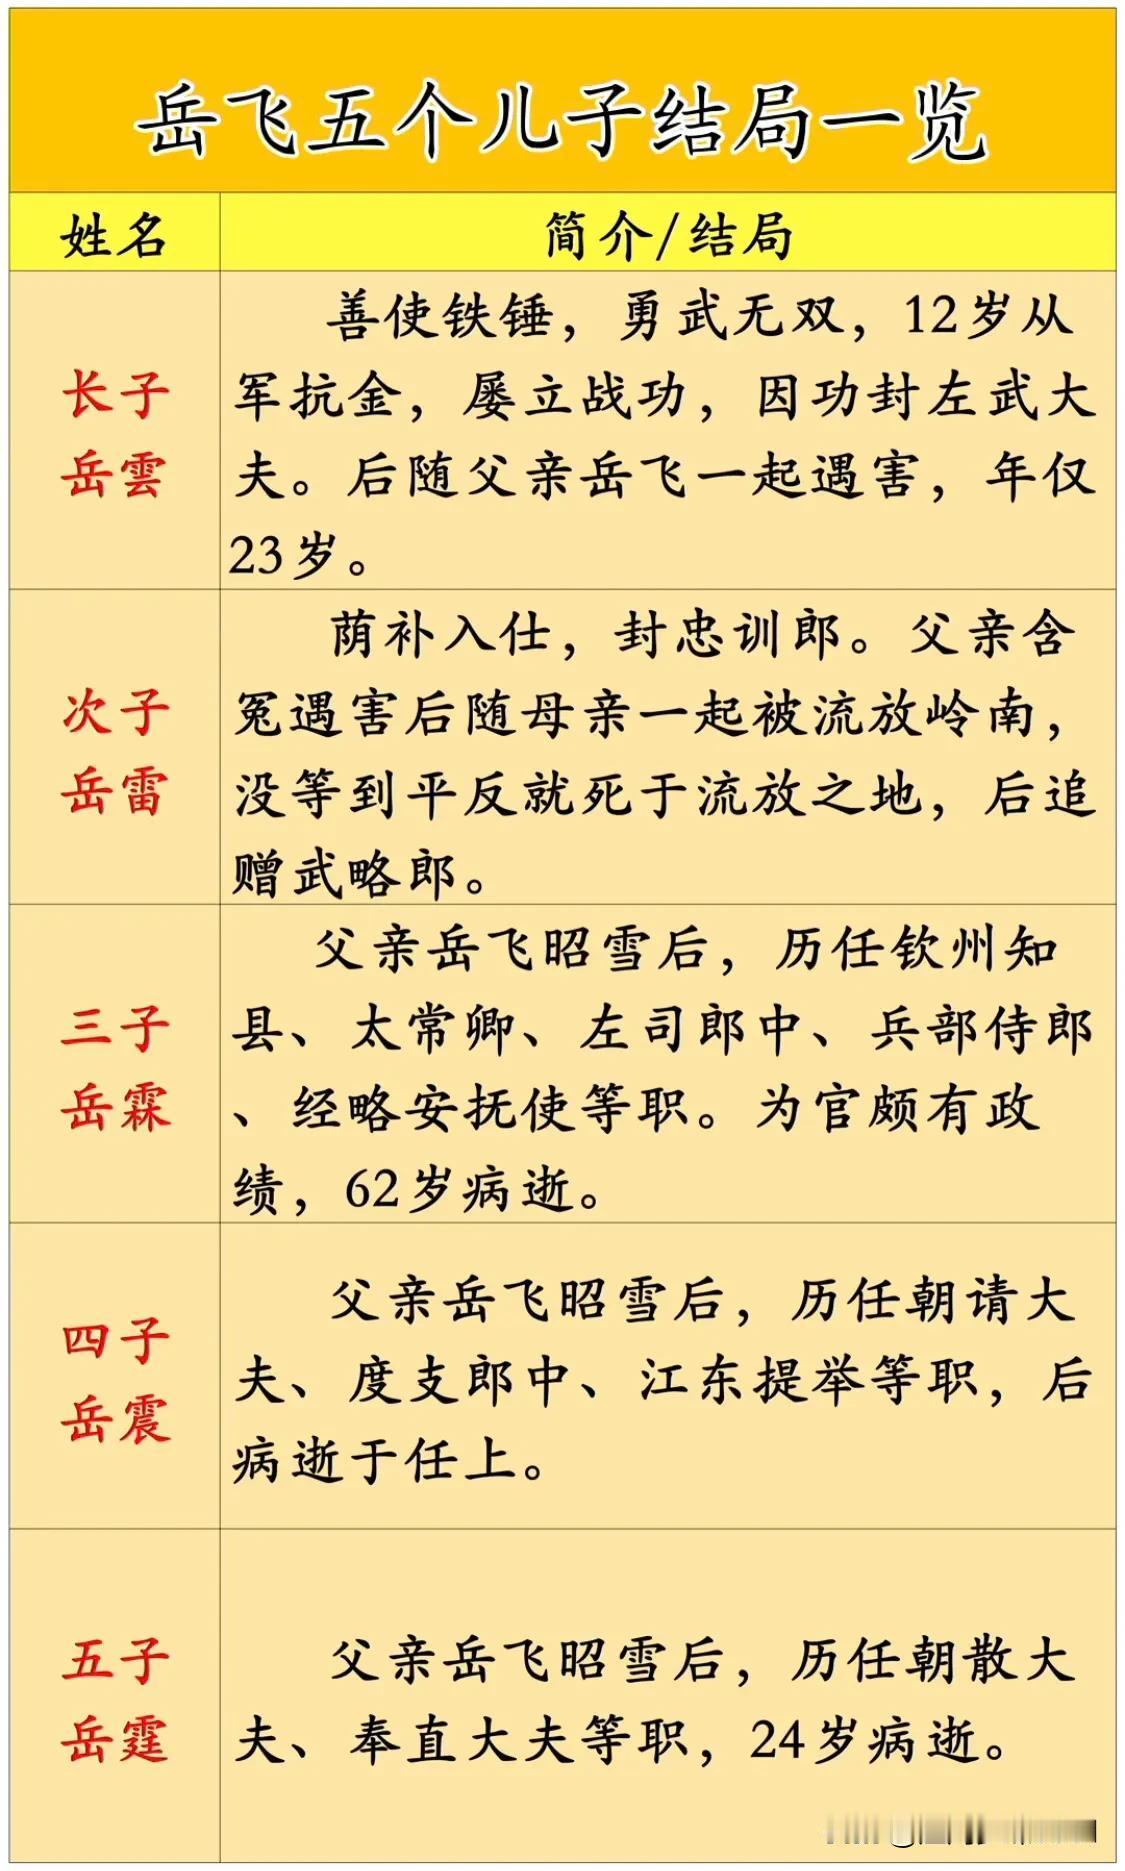 岳飞五个儿子结局一览
姓名
简介/结局
长子
岳雲
善使铁锤，勇武无双，12岁从
军抗金，屡立战功，因功封左武大
夫。后随父亲岳飞一起遇害，年仅
23岁。
次子
岳雷
荫补入仕，封忠训郎。父亲含
冤遇害后随母亲一起被流放岭南，
没等到平反就死于流放之地，后追
赠武略郎。
三子
岳霖
父亲岳飞昭雪后，历任钦州知
县、太常卿、左司郎中、兵部侍郎
、经略安抚使等职。为官颇有政
绩，62岁病逝。
四子
岳震
父亲岳飞昭雪后，历任朝请大
夫、度支郎中、江东提举等职，后
病逝于任上。
五子
岳霆
父亲岳飞昭雪后，历任朝散大
夫、奉直大夫等职，24岁病逝。